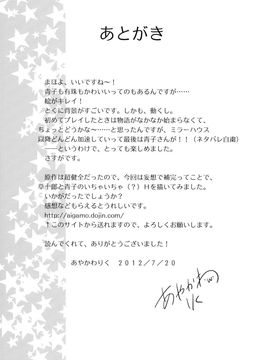 あとがき
まほよ、いいですね~!
青子も有珠もかわいいってのもあるんですが……
絵がキレイ!
とくに背景がすごいです。しかも、動くし。
初めてプレイしたときは物語がなかなか始まらなくて、
ちょっとどうかな~……と思ったんですが、ミラーハウス
以降どんどん加速していって最後は青子さんが!!(ネタバレ自粛)
――というわけで、とっても楽しめました。
さすがです。
原作は超健全だったので、今回は妄想で補完ってことで、
草十郎と青子のいちゃいちゃ(?)Hを描いてみました。
いかがだったでしょうか?
感想などもらえるとうれしいです。
http://aigamo.dojin.com/
↑このサイトから送れますので、よろしくお願いします。
読んでくれて、ありがとうございました!
あやかわりく 2012/7/20
あやかわりく